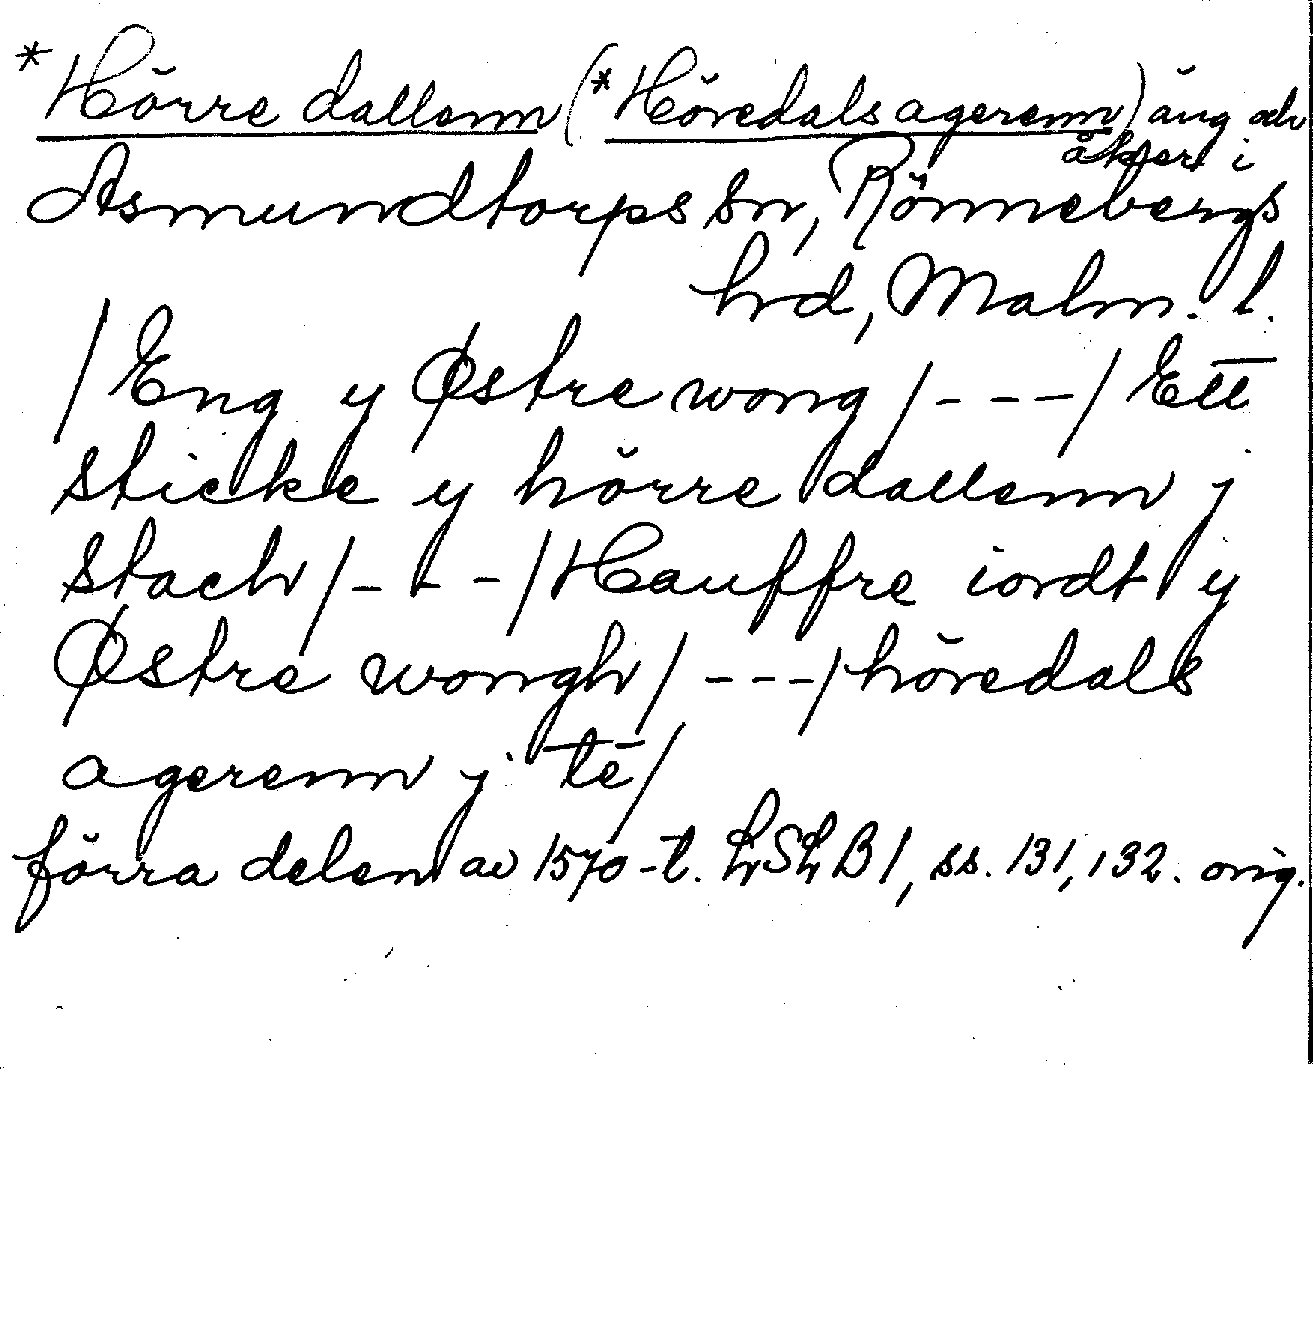 *Hörre dallenn (*Höredals agerenn) äng och
åker i
Asmundtorps sn, Rönnebergs
hd, Malm. l.
/Eng y Østre wong/---/Ett
sticke y hörre dallenn j
stach/---/Hauffre iordt y
Østre wongh/---/höredals
agerenn j te/
förra delen av 1570-t. LSLB1, ss. 131, 132. orig.